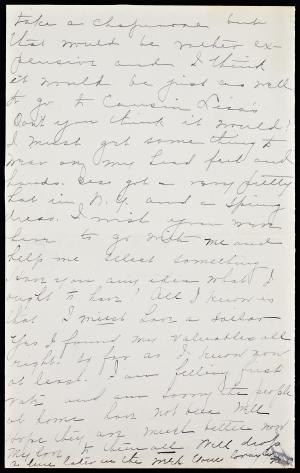 take a chaperone but
that would be rather ex-
pensive and I think
it would be just as well
to go to Cousin Lisa's
Don't you think it would?
I must get something to
wear on my head feet and
hands. Bess got a very pretty
hat in N.Y. and a spring
dress. I wish you were
here to go with me and
help me select something
Have you any idea what I
ought to have? All I know is
that I must have a sailor
Yes I found my valuables all
right. So far as I know now
at least. I am feeling first
rate and am sorry the people
at home have not been well
Hope they are much better now
My love to them all. Will drop
a line later in the week